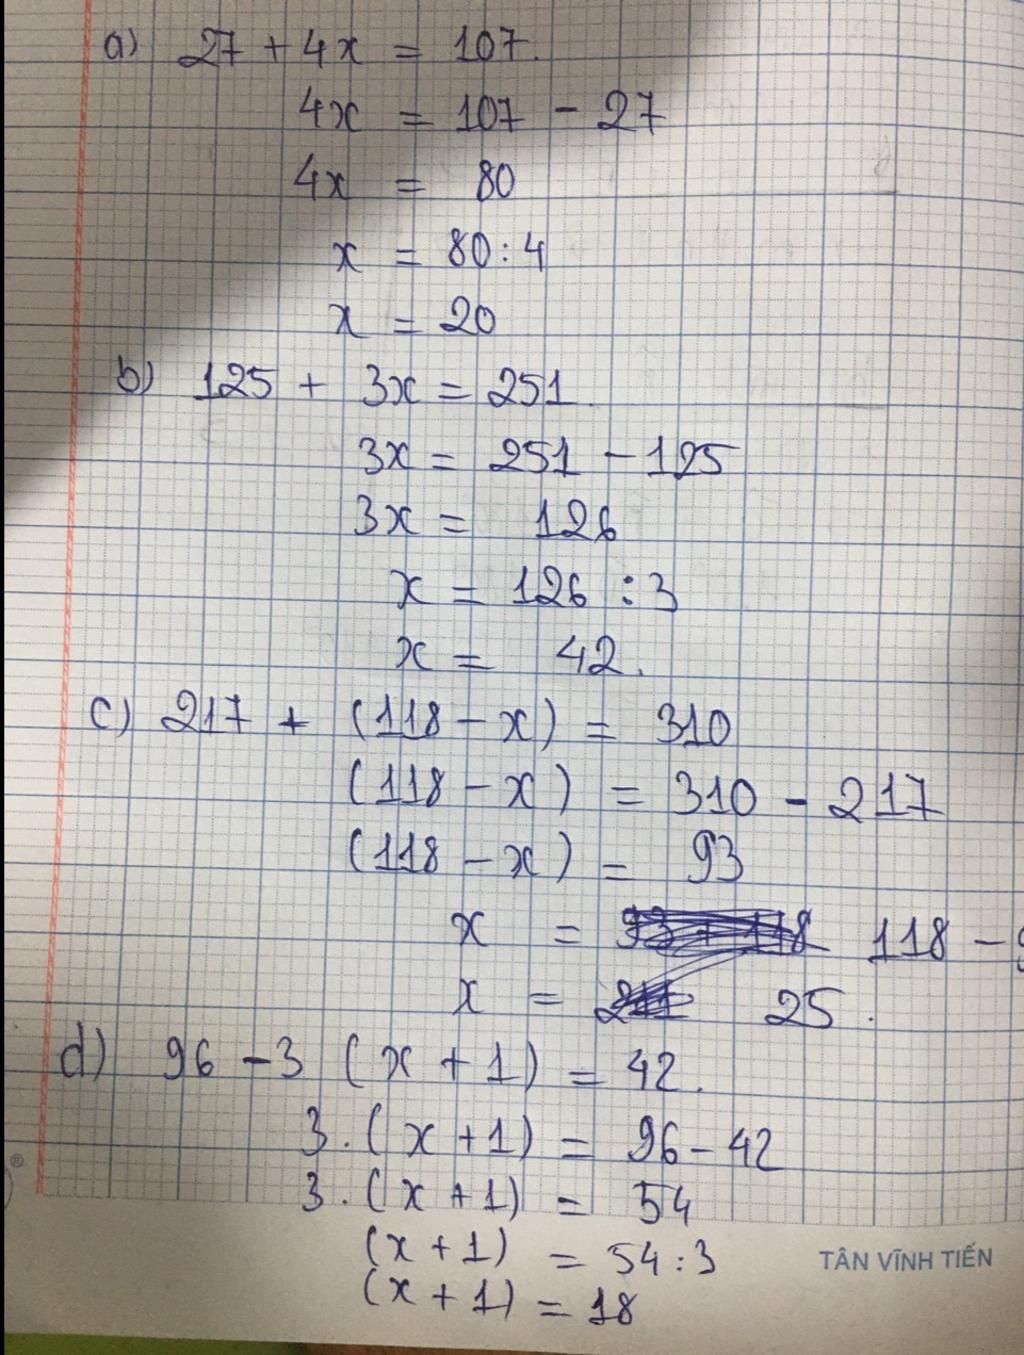 a) 27 + 4x = 107.
4x = 107 - 27
4x = 80
x = 80 : 4
x = 20
b) 125 + 3x = 251.
3x = 251 - 125
3x = 126
x = 126 : 3
x = 42.
c) 217 + (118 - x) = 310
(118 - x) = 310 - 217
(118 - x) = 93
x = 118 -
x = 25.
d) 96 - 3 (x + 1) = 42.
3. (x + 1) = 96 - 42
3. (x + 1) = 54
(x + 1) = 54 : 3
TÂN VĨNH TIẾN
(x + 1) = 18